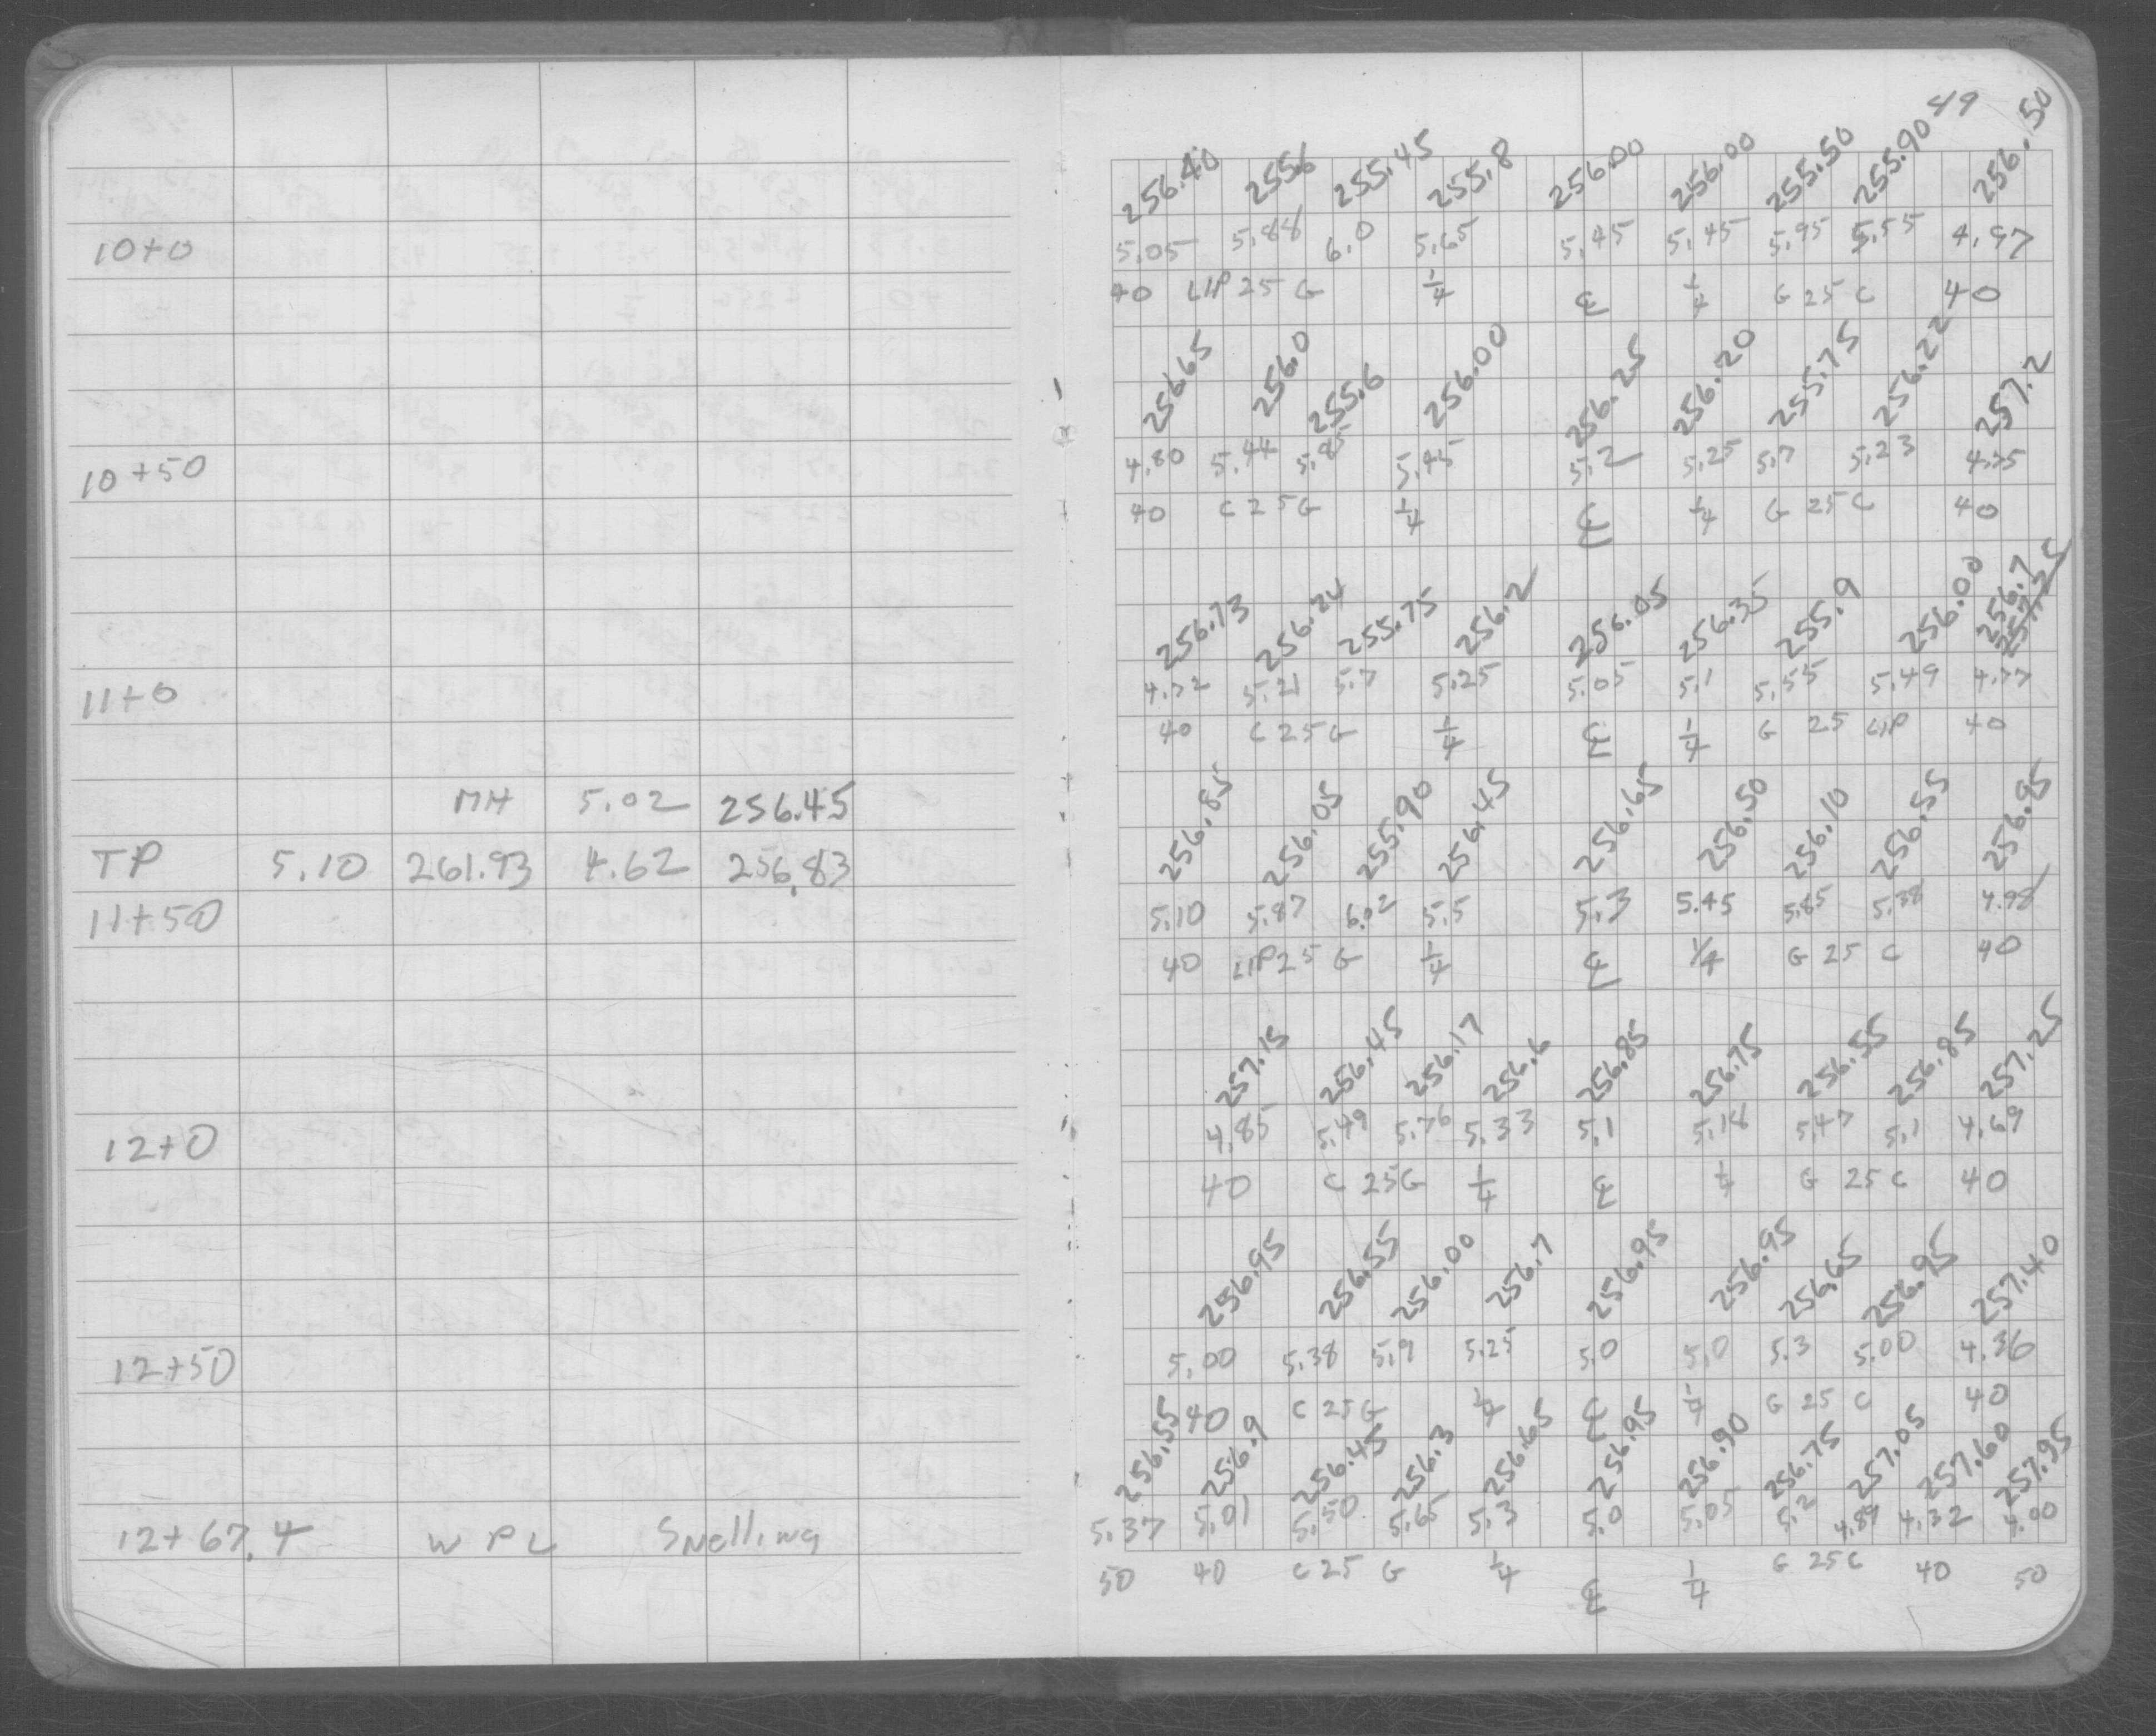 49
256.40 255.6 255.45 255.8 256.00 256.00 255.50 255.90 256.50
10+0 5.05 5.88 6.0 5.65 5.45 5.45 5.95 5.55 4.97
40 LIP 25 G 1/4 ℄ 1/4 G 25 C 40
256.65 256.0 255.6 256.00 256.25 256.20 255.75 256.22 257.2
10+50 4.80 5.44 5.85 5.45 5.2 5.25 5.7 5.23 4.25
40 C 25 G 1/4 ℄ 1/4 G 25 C 40
256.73 256.24 255.75 256.2 256.05 256.35 255.9 256.00 256.7 257.25
11+0 4.72 5.21 5.7 5.25 5.05 5.1 5.55 5.49 4.77
40 C 25 G 1/4 ℄ 1/4 G 25 LIP 40
MH 5.02 256.45
TP 5.10 261.93 4.62 256.83
256.85 256.05 255.90 256.45 256.65 256.50 256.10 256.55 256.95
11+50 5.10 5.87 6.02 5.5 5.3 5.45 5.85 5.38 4.98
40 LIP 25 G 1/4 ℄ 1/4 G 25 C 40
257.15 256.45 256.17 256.6 256.85 256.75 256.55 256.85 257.25
12+0 4.85 5.49 5.76 5.33 5.1 5.18 5.47 5.1 4.69
40 C 25 G 1/4 ℄ 1/4 G 25 C 40
256.95 256.55 256.00 256.7 256.95 256.95 256.65 256.95 257.40
12+50 5.00 5.38 5.9 5.25 5.0 5.0 5.3 5.00 4.36
40 C 25 G 1/4 ℄ 1/4 G 25 C 40
256.55 256.9 256.45 256.3 256.65 256.95 256.90 256.75 257.05 257.60 257.95
12+67.4 W PL Snelling 5.37 5.01 5.50 5.65 5.3 5.0 5.05 5.2 4.89 4.32 4.00
50 40 C 25 G 1/4 ℄ 1/4 G 25 C 40 50